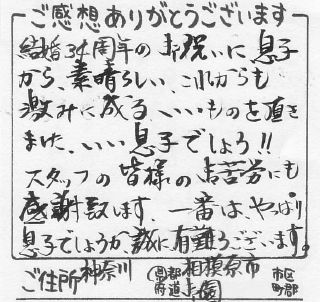 ご感想ありがとうございます
結婚34周年のお祝いに息子
から、素晴らしい、これからも
激みに成る、いいものを頂き
ました、いい息子でしょう!!
スタッフの皆様のご苦労にも
感謝致します、一番は、やっぱり
息子でしょうか、誠に有難うございます。
ご住所 神奈川 都道府県 相模原市 市区町郡